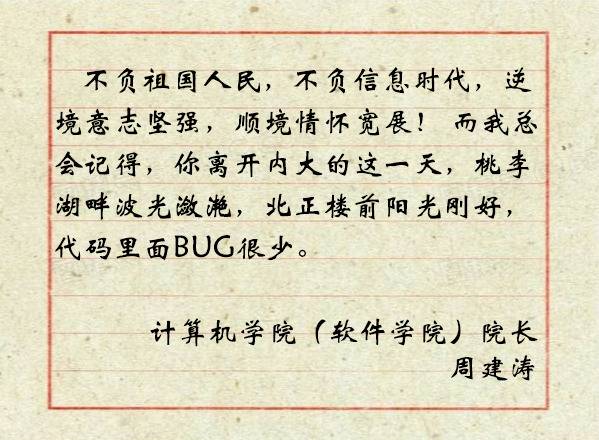 不负祖国人民，不负信息时代，逆
境意志坚强，顺境情怀宽展！而我总
会记得，你离开内大的这一天，桃李
湖畔波光潋滟，北正楼前阳光刚好，
代码里面BUG很少。
计算机学院（软件学院）院长
周建涛